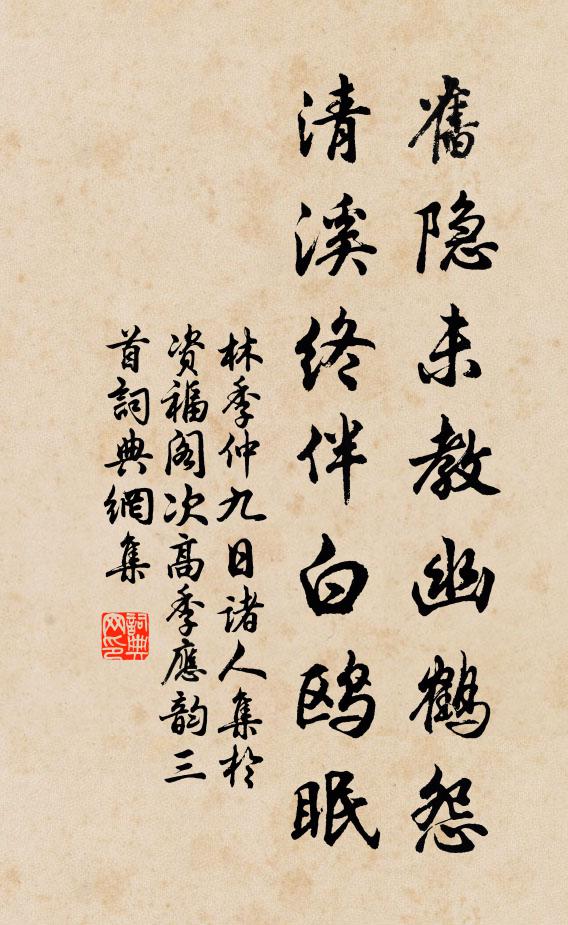 舊隐未教幽鶴怨
清溪终伴白鸥眠
林季仲九日诸人集於
资福阁次高季應韵三
首詞典網集
詞典网印